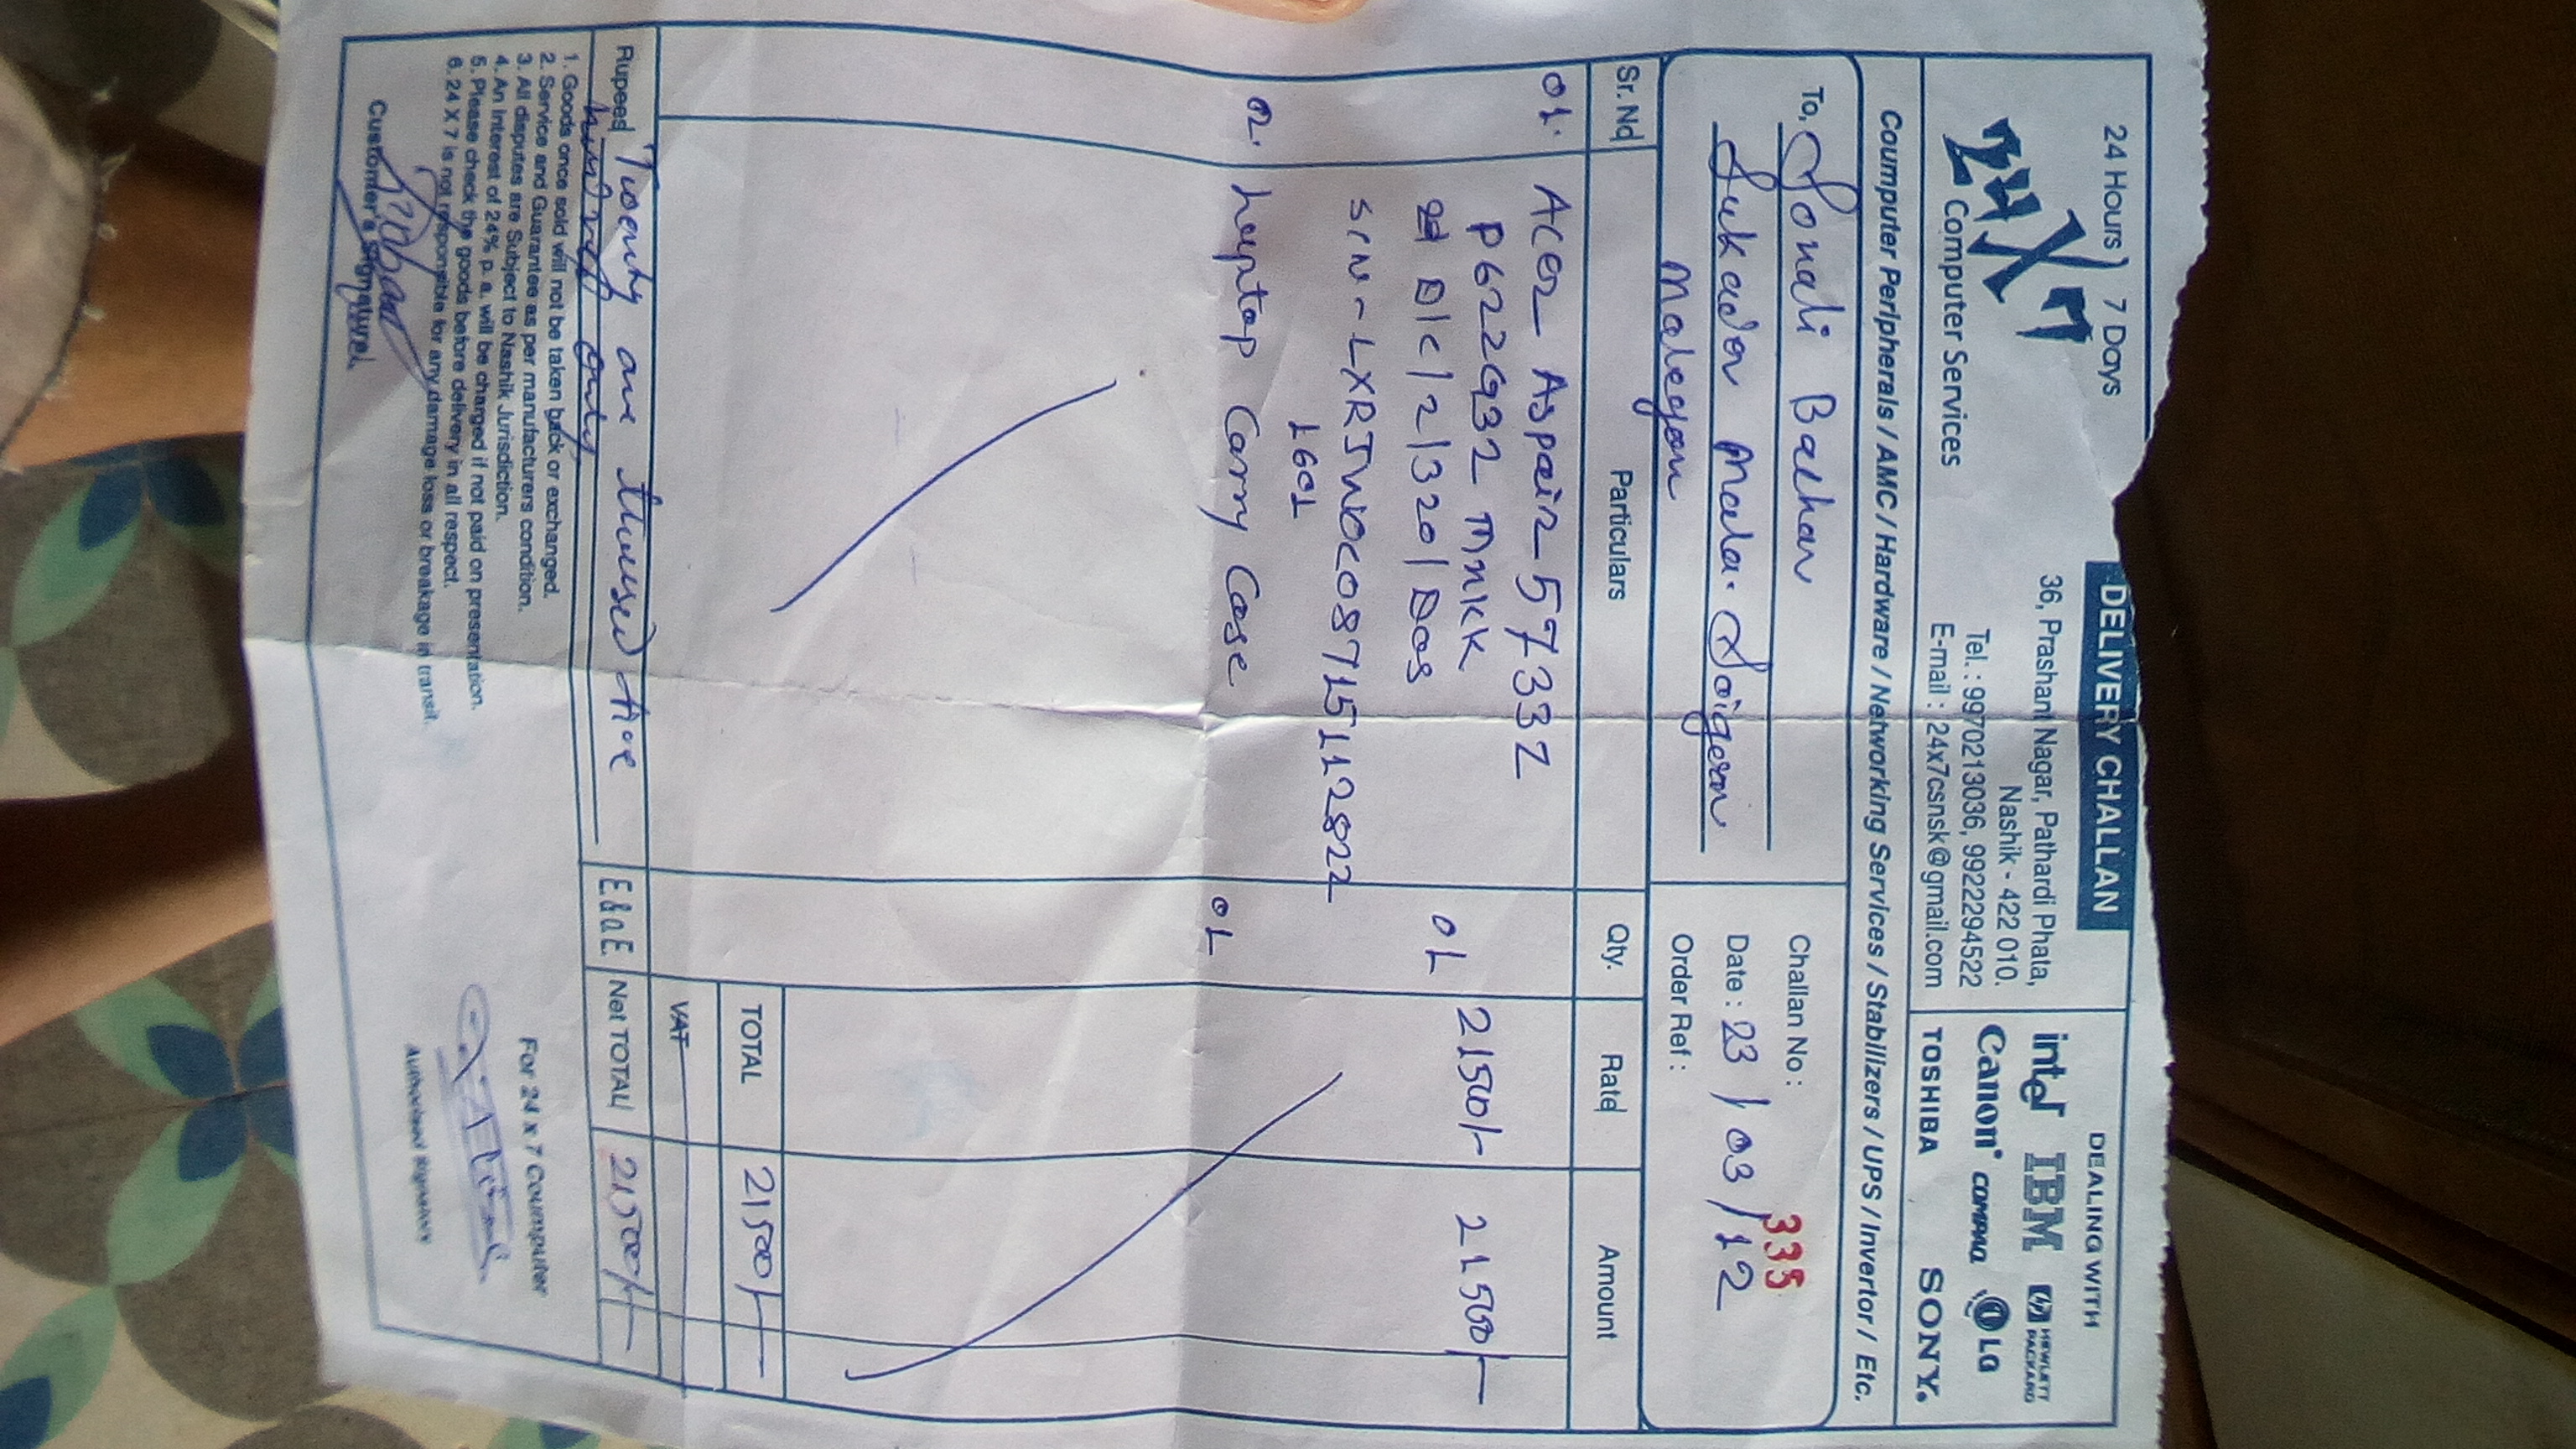 24 Hours 7 Days
DELIVERY CHALLAN
DEALING WITH
24X7
Computer Services
36, Prashant Nagar, Pathardi Phata,
Nashik - 422 010.
Tel. : 9970213036, 9922294522
E-mail : 24x7csnsk@gmail.com
intel IBM hp HEWLETT PACKARD
Canon COMPAQ LG
TOSHIBA SONY
Coumputer Peripherals / AMC / Hardware / Networking Services / Stabilizers / UPS / Invertor / Etc.
To, Sonali Bachav
Sukadev Mala. Soigaon
Malegaon
Challan No : 335
Date : 23/03/12
Order Ref :
Sr. No Particulars Qty. Rate Amount
01. Acer Aspair 5733Z
P622G32 Mnkk 01 21500/- 21500/-
D/C/2/320/Dos
SrN-LXRJW0C08715112822
1601
02. Laptop Carry Case 01
TOTAL 21500/-
VAT
Rupees Twenty one thoused five
hundred only
E & O.E. Net TOTAL 21500/-
1. Goods once sold will not be taken back or exchanged.
2. Service and Guarantee as per manufacturers condition.
3. All disputes are Subject to Nashik Jurisdiction.
4. An Interest of 24% p. a. will be charged if not paid on presentation.
5. Please check the goods before delivery in all respect.
6. 24 X 7 is not responsible for any damage loss or breakage in transit.
For 24 x 7 Coumputer
Customer's Signature
Authorised Signatory